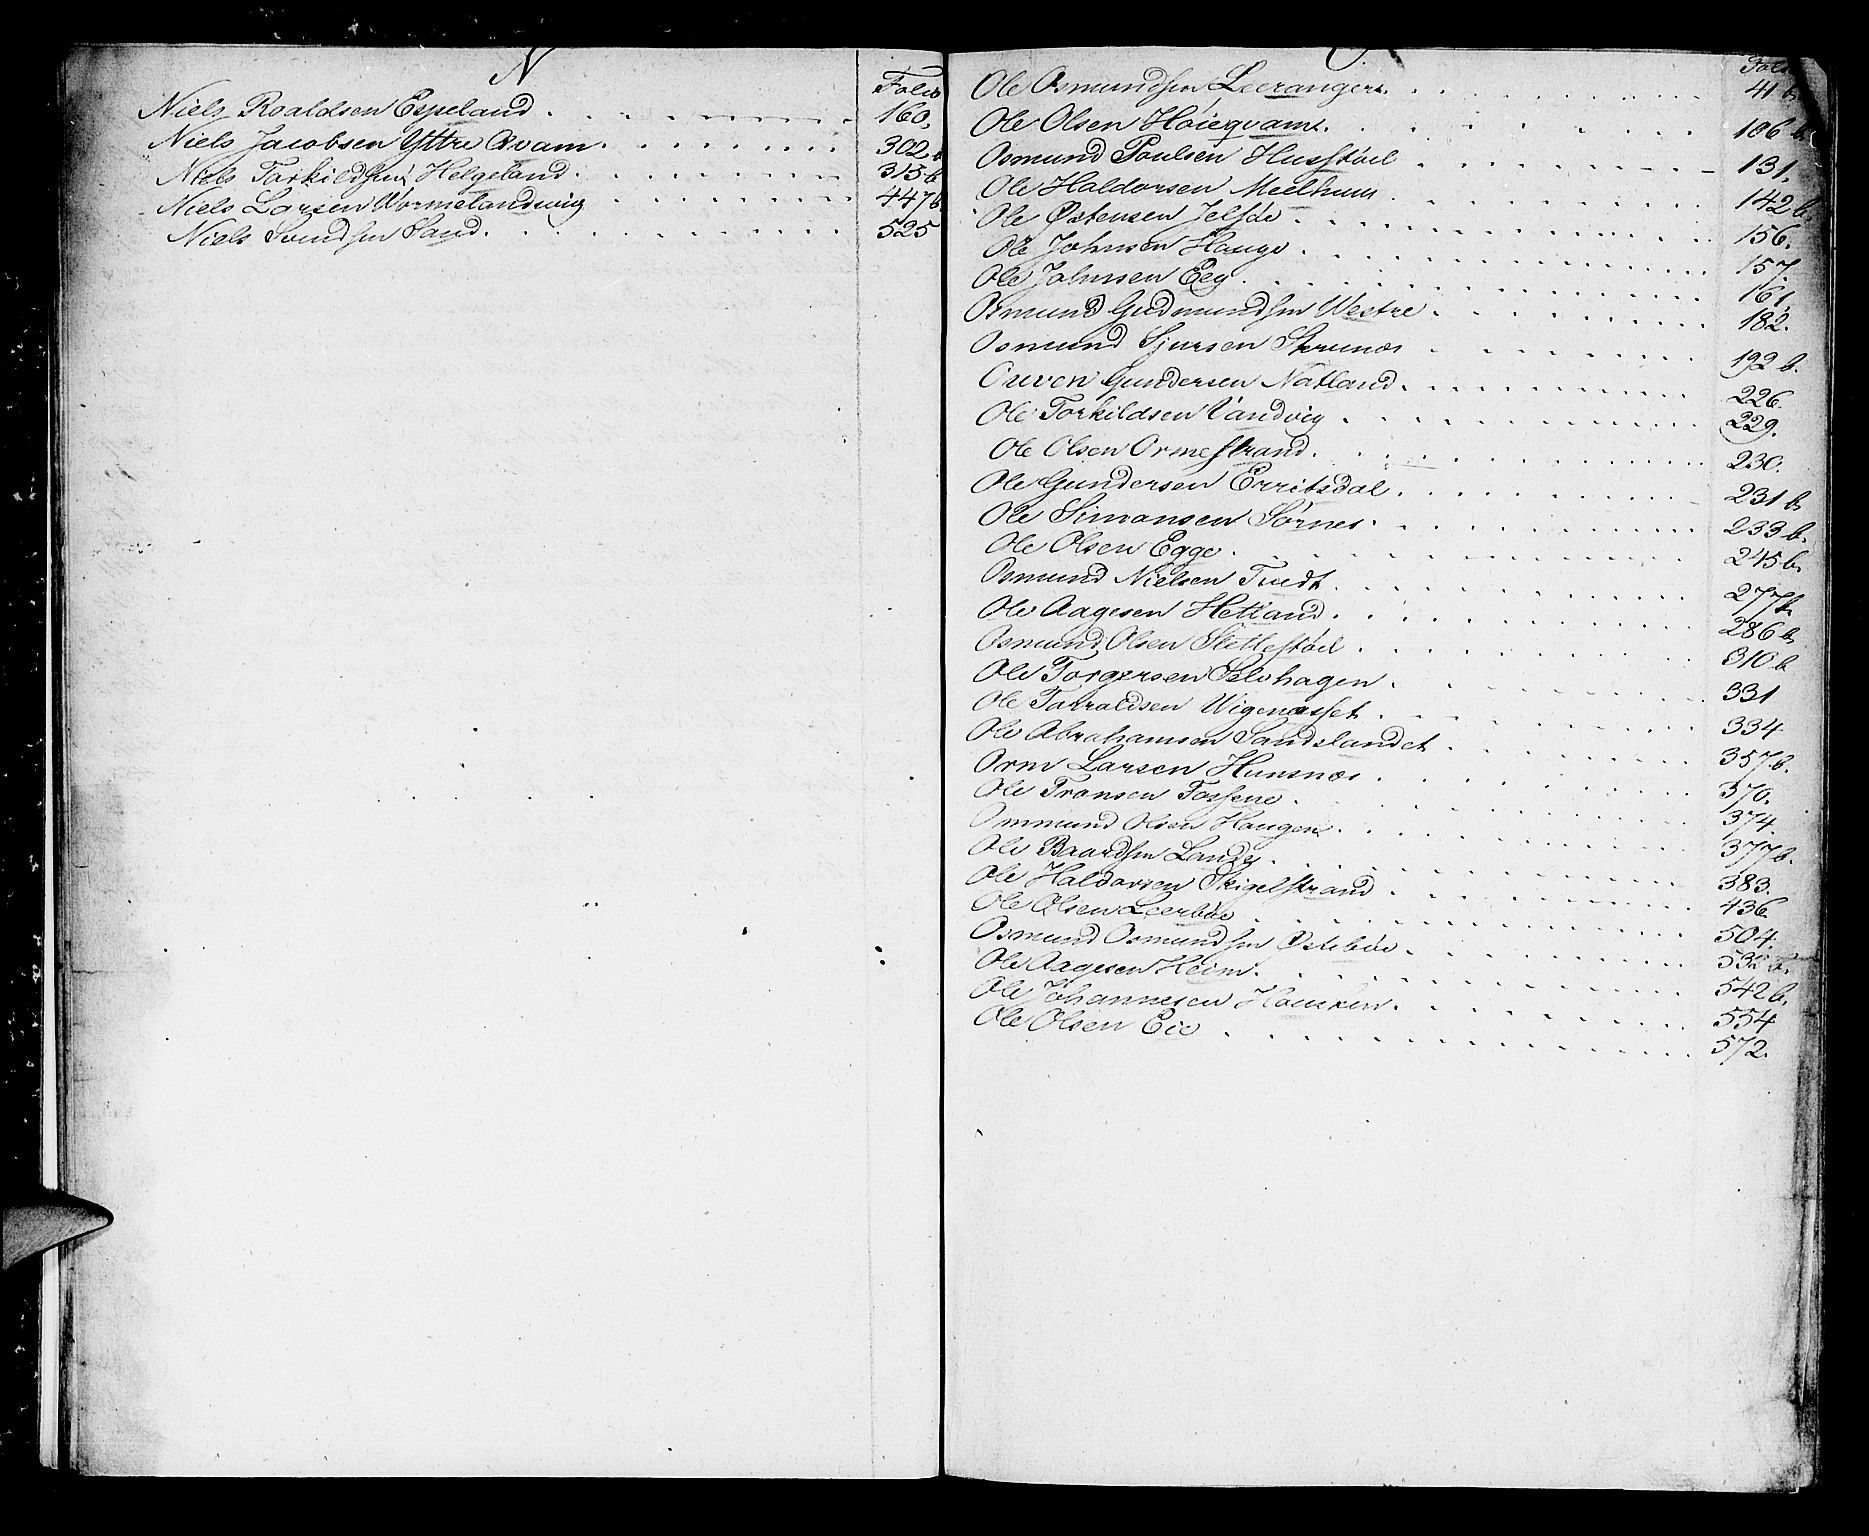 N
Folio
Niels Roaldsen Espeland 160.
Niels Jacobsen Yttre Qvam 302 b
Niels Torkildsen Helgeland 315 b
Niels Larsen Wormelandsvig 447 b
Niels Svendsen Sand 525
O
Folio
Ole Osmundsen Leeranger 41 b.
Ole Olsen Høieqvam 106 b.
Osmund Poulsen Husstøel 131.
Ole Haldorsen Meelhuus 142 b.
Ole Østensen Jelsøe 156.
Ole Johnsen Hauge 157.
Ole Johnsen Eeg 161.
Osmund Gudmundsen Westre 182.
Osmund Sjursen 192 b.
Ouven Gundersen Natland 226.
Ole Torkildsen Vandvig 229.
Ole Olsen Ormestrand 230.
Ole Gundersen Erritsdal 231 b.
Ole Simonsen Sørnes 233 b.
Ole Olsen Egge 245 b.
Osmund Nielsen Tvedt 277 b.
Ole Aagesen Hetland 286 b.
Osmund Olsen Slettestøel 310 b
Ole Torgersen Selvhagen 331
Ole Torraldsen Wigenæsset 334
Ole Abrahamsen Sandslandet 357 b.
Orm Larsen Humsnæs 370.
Ole Transen Fossene 374.
Ommund Olsen Haugen 377 b.
Ole Baardsen Landy 383.
Ole Haldorsen Skigelstrand 436.
Ole Olsen Leerbøe 504.
Osmund Osmundsen Østebøe 532 b.
Ole Aagesen Heim 542 b.
Ole Johannesen 554
Ole Olsen Eie 572.